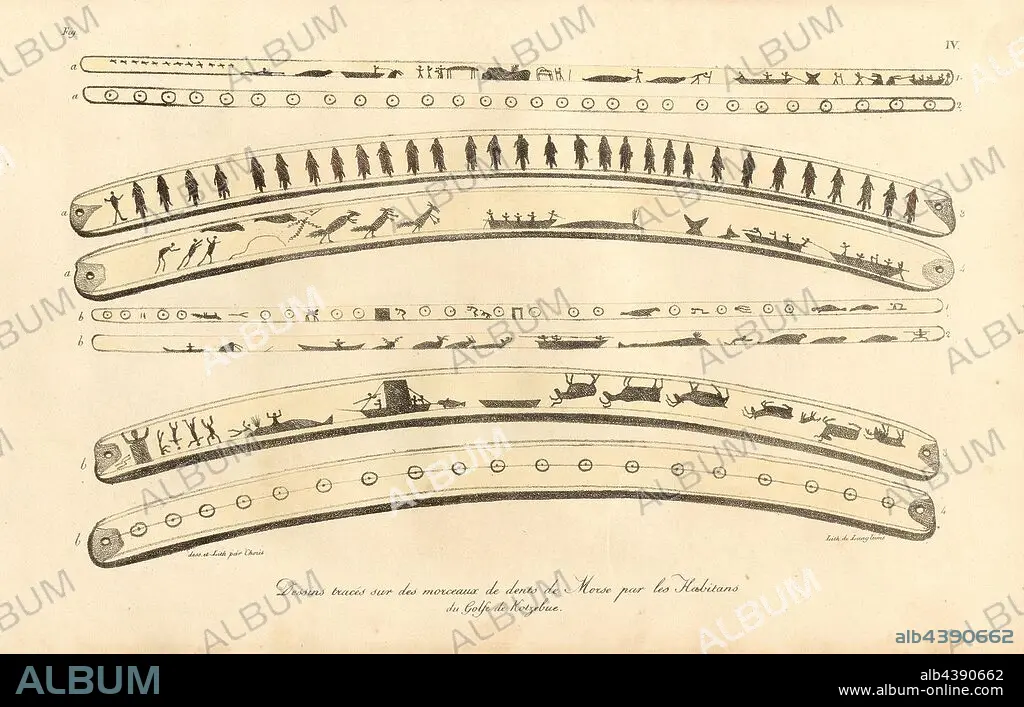 Fig
IV.
a
1.
a
2.
a
3
a
4
b
1
b
2
b
3
b
4
dess. et Lith par Choris
Lith de Langlumé
Dessins tracés sur des morceaux de dents de Morse par les Habitans
du Golfe de Kotzebue.
ALBUM
alb4390662
ALBUM
alb4390662
www.album-online.com